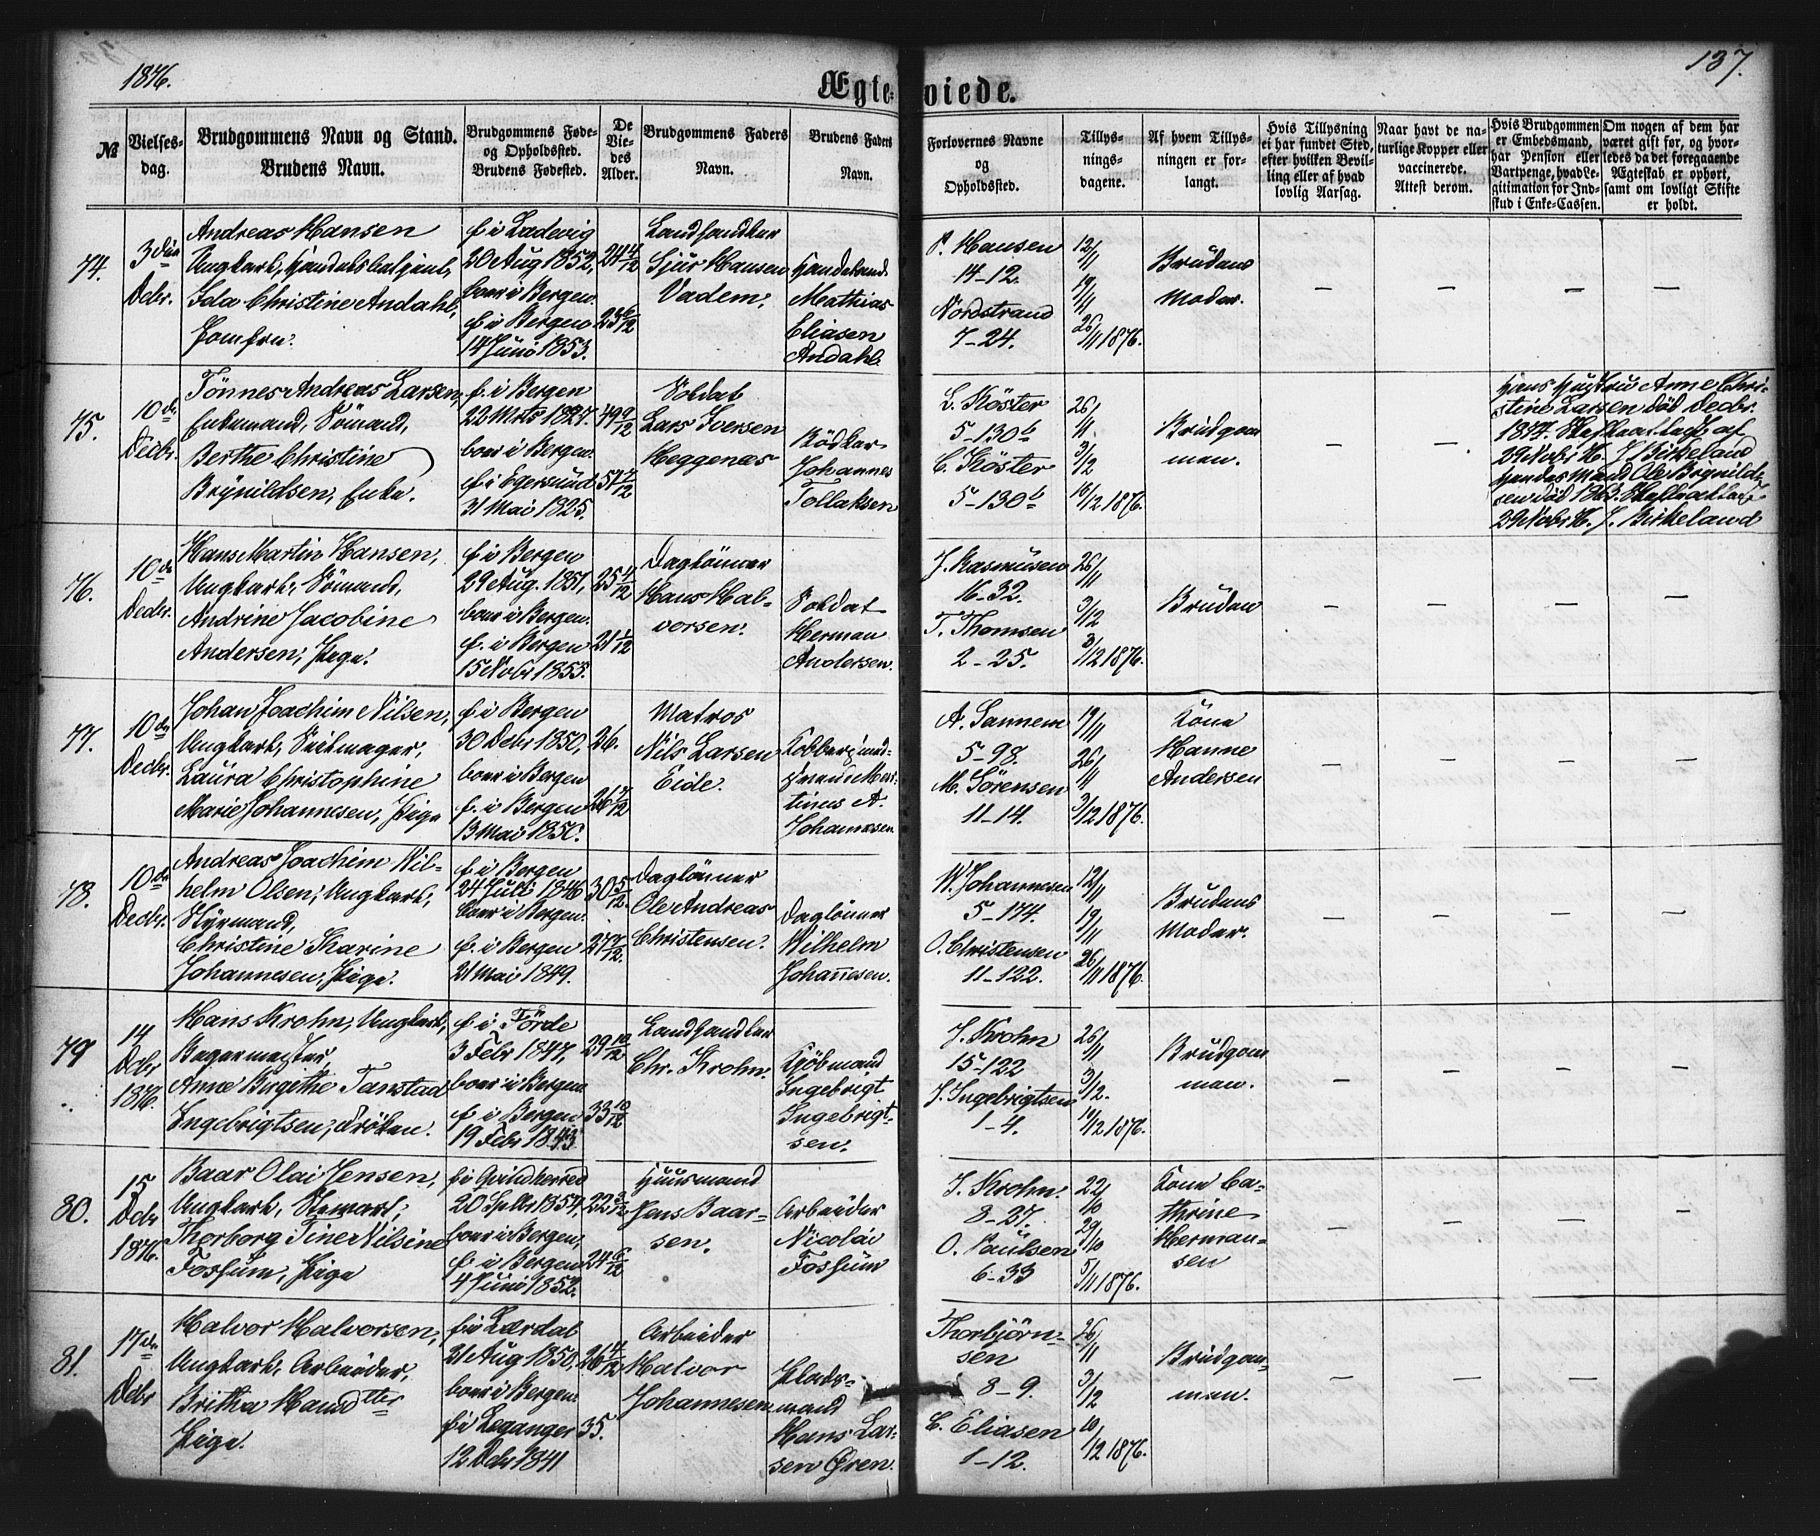 1876.
137.
Ægteviede.
№
Vielses-
dag.
Brudgommens Navn og Stand.
Brudens Navn.
Brudgommens Føde-
og Opholdssted.
Brudens Fødested.
De
Vie-
des
Alder.
Brudgommens Faders
Navn.
Brudens Faders
Navn.
Forlovernes Navne
og
Opholdssted.
Tillys-
nings-
dagene.
Af hvem Tillys-
ningen er for-
langt.
Hvis Tillysning
ei har fundet Sted,
efter hvilken Bevil-
ling eller af hvad
lovlig Aarsag.
Naar havt de na-
turlige Kopper eller
vaccinerede.
Attest derom.
Hvis Brudgommen
er Embedsmand,
har Pension eller
Vartpenge, hvad Le-
gitimation for Ind-
skud i Enke-Cassen.
Om nogen af dem har
været gift før, og hvor-
ledes da det foregaaende
Ægteskab er ophørt,
samt om lovligt Skifte
er holdt.
74.
3die
Decbr.
Andreas Hansen
Ungkarl, Handelsbetjent,
Ida Christine Andahl,
Jomfru.
f. i Ladevig
20 Aug 1852,
boer i Bergen.
f. i Bergen
14 Juni 1853.
24 4/12
23 6/12
Landhandler
Sjur Hansen
Vadem.
Handelsmd.
Mathias
Eliasen
Andahl.
P. Hansen
14-12.
Nordstrand
7-24.
12/11
19/11
26/11 1876.
Brudens
Moder.
— — — —
75.
10de
Decbr.
Tönnes Andreas Larsen,
Enkemand, Sömand,
Berthe Christine
Brynildsen, Enke.
f. i Bergen
22 Mrts 1827.
boer i Bergen.
f. i Egersund
31 Mai 1825.
49 9/12
51 7/12
Soldat
Lars Iversen
Heggenæs
Bödker
Johannes
Tollaksen
L. Köster
5-130b
C. Köster
5-130b
26/11
3/12
10/12 1876.
Brudgom
men.
— —
Hans Hustru Anne Chri-
stine Larsen död Decbr.
1874. Skifteattest af
29 Novbr 76. J. Birkeland
Hendes Mand Ole Brynild-
sen död 1863. Skifteattest
29 Novbr 76. J. Birkeland
76.
10de
Decbr.
Hans Martin Hansen,
Ungkarl, Sömand,
Andrine Jacobine
Andersen, Pige.
f. i Bergen
29 Aug. 1851,
boer i Bergen.
f. i Bergen
15 Novbr 1855.
25 4/12
21 1/12
Daglönner
Hans Hal-
vorsen.
Soldat
Herman
Andersen.
J. Rasmusen
16-32.
T. Thomsen
2-25.
26/11
3/12
1876.
Bruden
— — — —
77.
10de
Decbr.
Johan Joachim Nilsen,
Ungkarl, Seilmager,
Laura Christophine
Marie Johannesen, Pige
f. i Bergen
30 Decbr 1850,
boer i Bergen
f. i Bergen
13 Mai 1850.
26.
26 7/12
Matros
Nils Larsen
Eide.
Kobbersmed-
svend Mar-
tinus A.
Johannesen
A. Sannem
5-98.
M. Sörensen
11-14.
19/11
26/11
3/12 1876.
Kone
Hanne
Andersen
— — — —
78.
10de
Decbr.
Andreas Joachim Wil-
helm Olsen, Ungkarl,
Styrmand,
Christine Karine
Johannesen, Pige.
f. i Bergen
24 Juli 1846
boer i Bergen.
f. i Bergen
21 Mai 1849.
30 5/12.
27 7/12.
Daglönner
Ole Andreas
Christensen.
Daglönner
Wilhelm
Johannesen.
W. Johannesen
5-174.
O. Christensen
11-122.
12/11
19/11
26/11 1876.
Brudens
Moder.
— — — —
79
14
Dcbr
1876.
Hans Krohn, Ungkarl,
Bagermester,
Anne Birgithe Tanstad
Ingebrigtsen, Fröken.
f. i Förde
3 Febr 1847,
boer i Bergen
f. i Bergen
19 Febr 1843.
29 10/12
33 10/12
Landhandler
Chr. Krohn.
Kjöbmand
Ingebrigt
Ingebrigt-
sen.
J. Krohn
15-122
J. Ingebrigtsen
1-4.
26/11
3/12.
10/12 1876.
Brudgom
men.
— — — —
80.
15
Dcbr
1876.
Baar Olai Jensen,
Ungkarl,
Thorborg Tine Nilsine
Fossum, Pige
f. i Qvindherred
20 Septbr 1854,
boer i Bergen,
f. i Bergen
4 Juni 1852.
22 3/12
24 6/12
Huusmand
Jens Baar-
sen.
Arbeider
Nicolai
Fossum
J. Krohn.
8-27.
O. Paulsen
6-33
22/10
29/10
5/11 1876.
Kone Ca-
thrine
Herman-
sen
— — — —
81.
17de
Dcbr
Halvor Halvorsen,
Ungkarl, Arbeider,
Britha Hansdtter
Pige.
f. i Lærdal
21 Aug 1850,
boer i Bergen.
f. i Leganger
12 Dcbr 1841
26 4/12
35.
Arbeider
Halvor
Johannesen
Plads-
mand
Hans Lar-
sen Øren.
Thorbjörn-
sen
8-9.
C. Eliasen
1-12.
26/11
3/12
10/12 1876.
Brudgom-
men.
— — — —